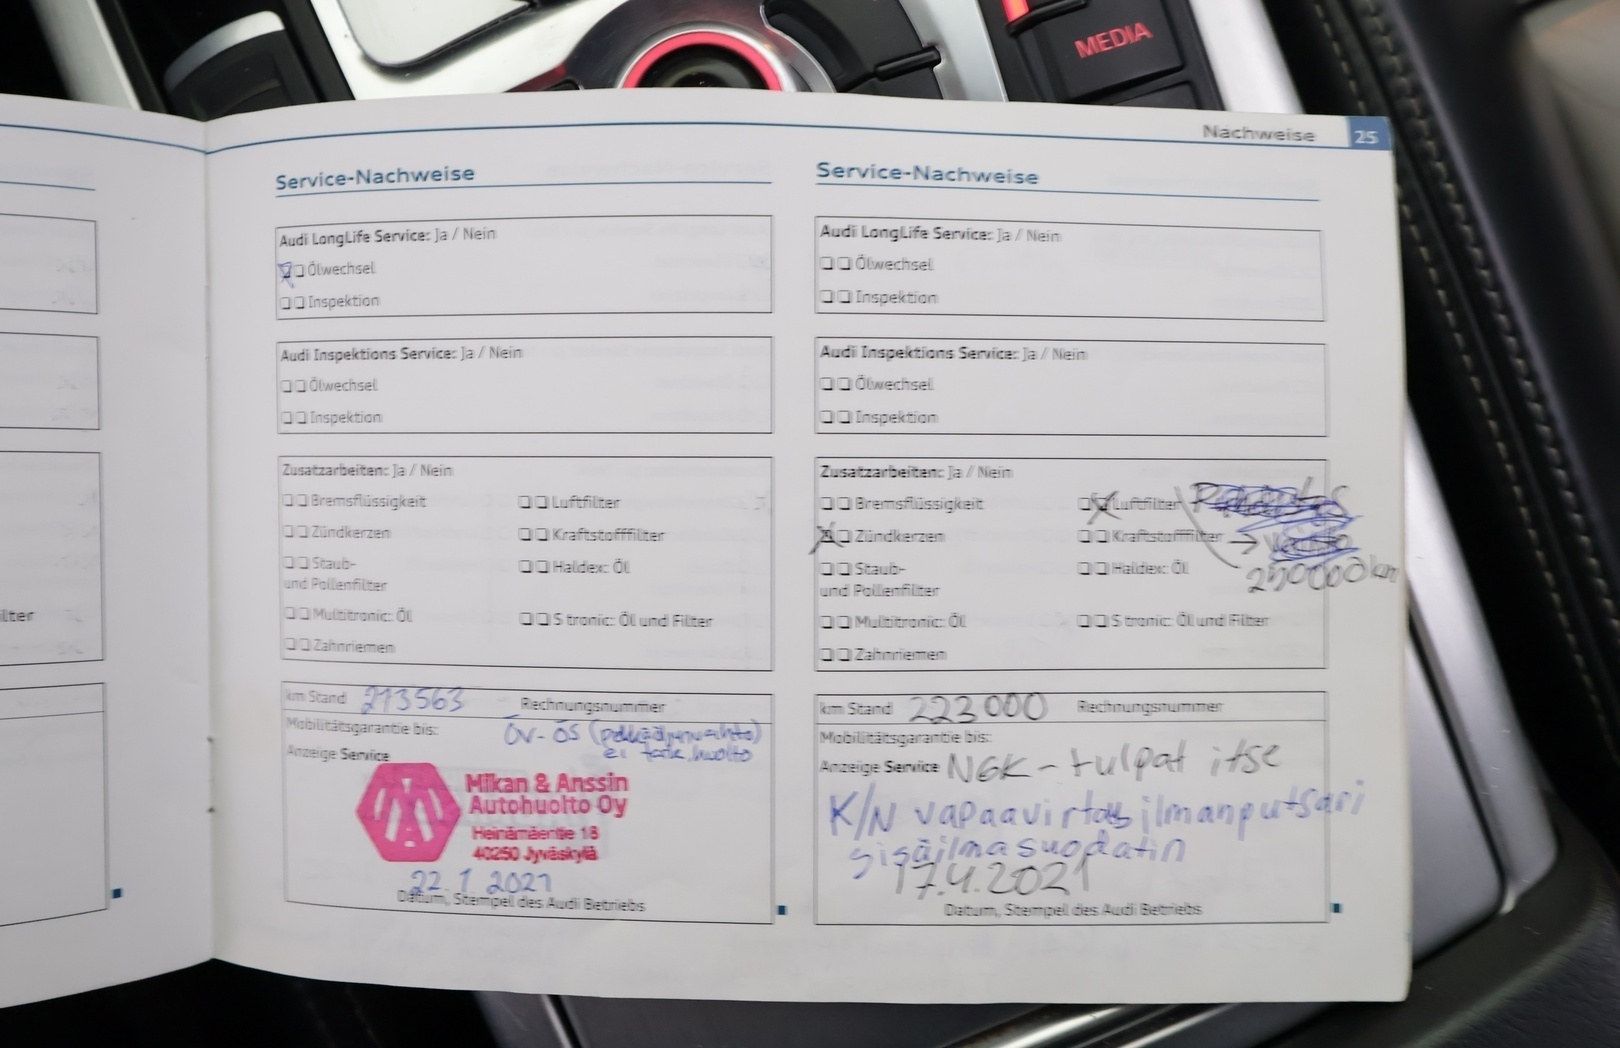 MEDIA
Nachweise 25
Service-Nachweise
Audi LongLife Service: Ja / Nein
Ölwechsel
Inspektion
Audi Inspektions Service: Ja / Nein
Ölwechsel
Inspektion
Zusatzarbeiten: Ja / Nein
Bremsflüssigkeit Luftfilter
Zündkerzen Kraftstofffilter
Staub- Haldex: Öl
und Pollenfilter
Multitronic: Öl S tronic: Öl und Filter
Zahnriemen
km Stand 213563 Rechnungsnummer
Mobilitätsgarantie bis: ÖV-ÖS
Anzeige Service ei tark.huolto
Mikan & Anssin
Autohuolto Oy
Heinämäentie 18
40250 Jyväskylä
22.1.2021
Datum, Stempel des Audi Betriebs
Service-Nachweise
Audi LongLife Service: Ja / Nein
Ölwechsel
Inspektion
Audi Inspektions Service: Ja / Nein
Ölwechsel
Inspektion
Zusatzarbeiten: Ja / Nein
Bremsflüssigkeit Luftfilter
Zündkerzen Kraftstofffilter →
Staub- Haldex: Öl 250000km
und Pollenfilter
Multitronic: Öl S tronic: Öl und Filter
Zahnriemen
km Stand 223000 Rechnungsnummer
Mobilitätsgarantie bis:
Anzeige Service NGK-tulpat itse
K/N vapaavirtaus ilmanputsari
sisäilmasuodatin
17.4.2021
Datum, Stempel des Audi Betriebs
lter